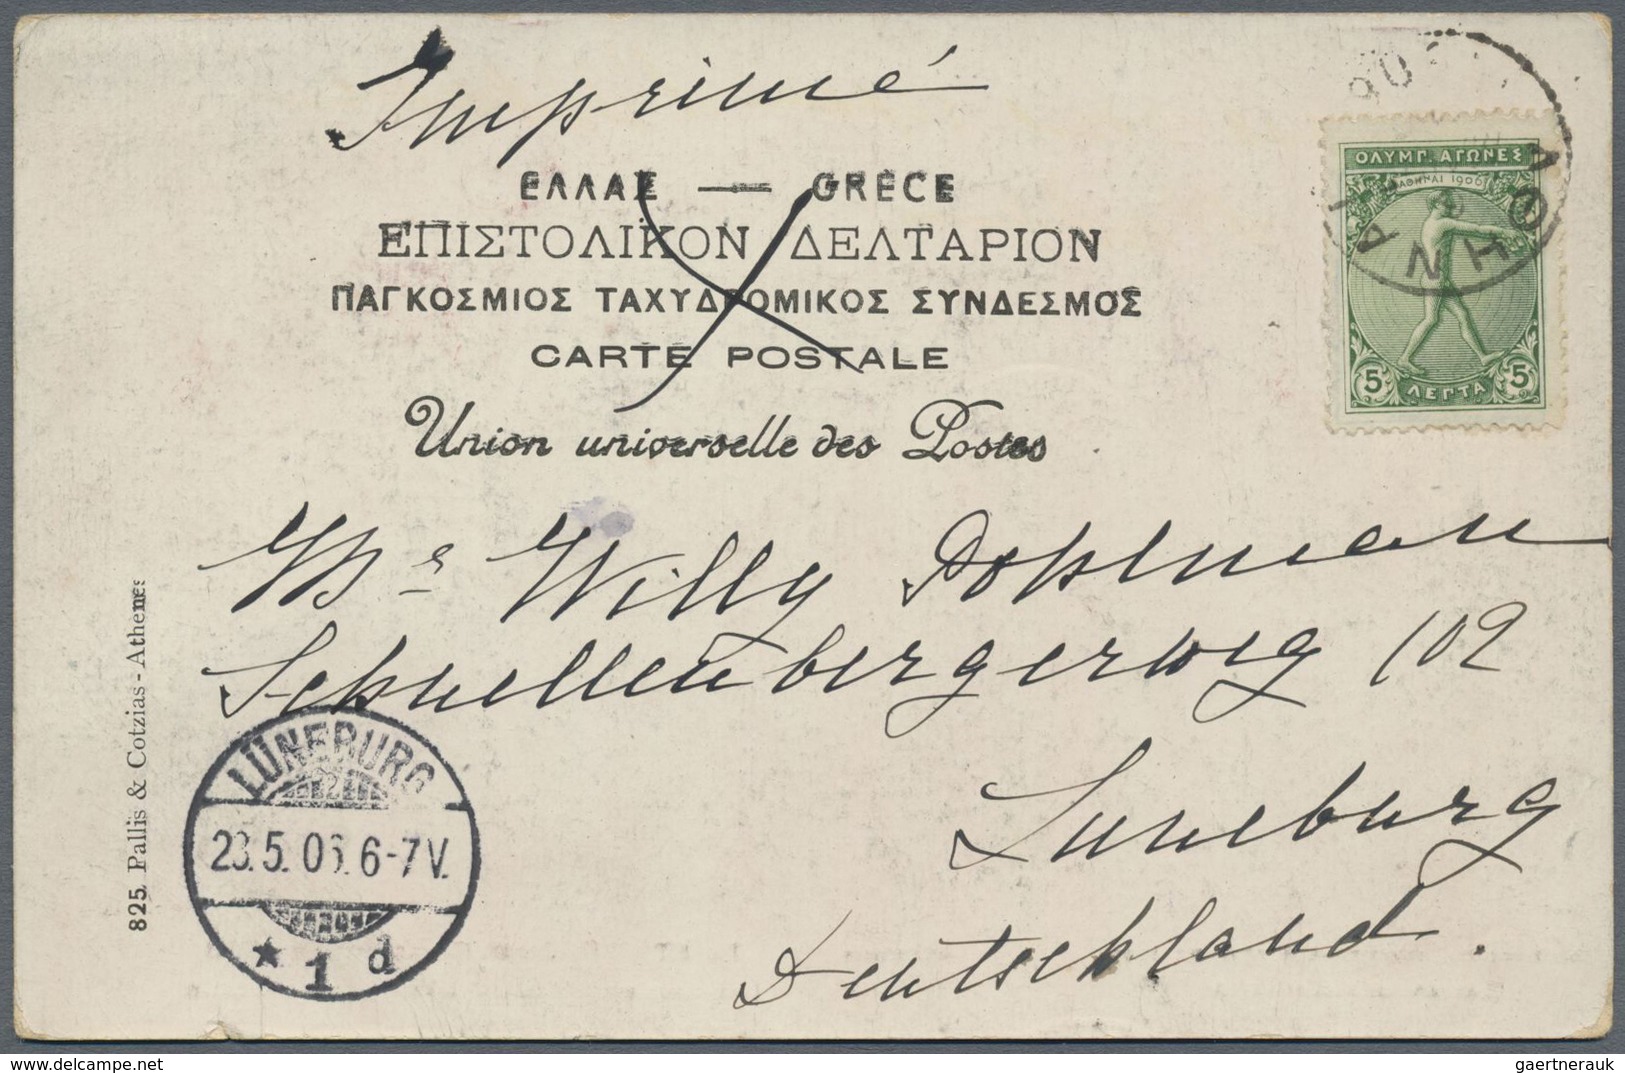 Imprimé
ΕΛΛΑΣ — GRÈCE
ΕΠΙΣΤΟΛΙΚΟΝ ΔΕΛΤΑΡΙΟΝ
ΠΑΓΚΟΣΜΙΟΣ ΤΑΧΥΔΡΟΜΙΚΟΣ ΣΥΝΔΕΣΜΟΣ
CARTE POSTALE
Union universelle des Postes
ΟΛΥΜΠ. ΑΓΩΝΕΣ
ΑΘΗΝΑΙ 1906
5 ΛΕΠΤΑ 5
ΑΘΗΝΑΙ
Willy Pohlman
Schnellenbergerweg 102
Luneburg
Deutschland.
825. Pallis & Cotzias - Athènes
LÜNEBURG
23.5.06.6-7V.
* 1 d
Delcampe.net
gaertnerauk